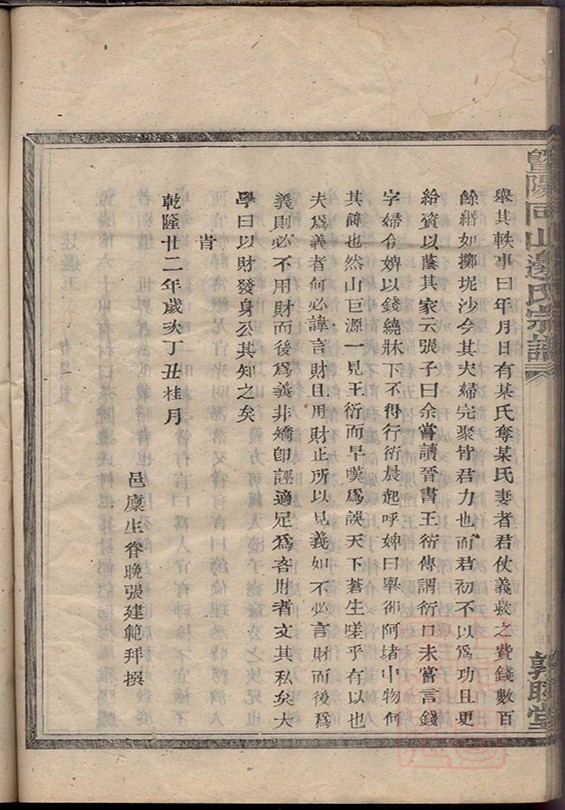 暨陽同山邊氏宗譜
敦睦堂
舉其軼事曰年月日有某氏奪某氏妻者君仗義救之費錢數百
餘緡如擲坭沙今其夫婦完聚皆君力也而君初不以爲功且更
給資以蔭其家云張子曰余嘗讀晉書王衍傳謂衍口未嘗言錢
字婦令婢以錢繞牀下不得行衍晨起呼婢曰舉卻阿堵中物何
其
也然山巨源一見王衍而早嘆爲誤天下蒼生嗟乎有以也
夫爲義者何必諱言財且用財正所以見義如不必言財而後爲
義則必不用財而後爲義非矯卽誣適足爲吝財者文其私矣大
學曰以財發身公其知之矣
旹
乾隆廿二年歲次丁丑桂月
邑廩生眷晚張建範拜撰